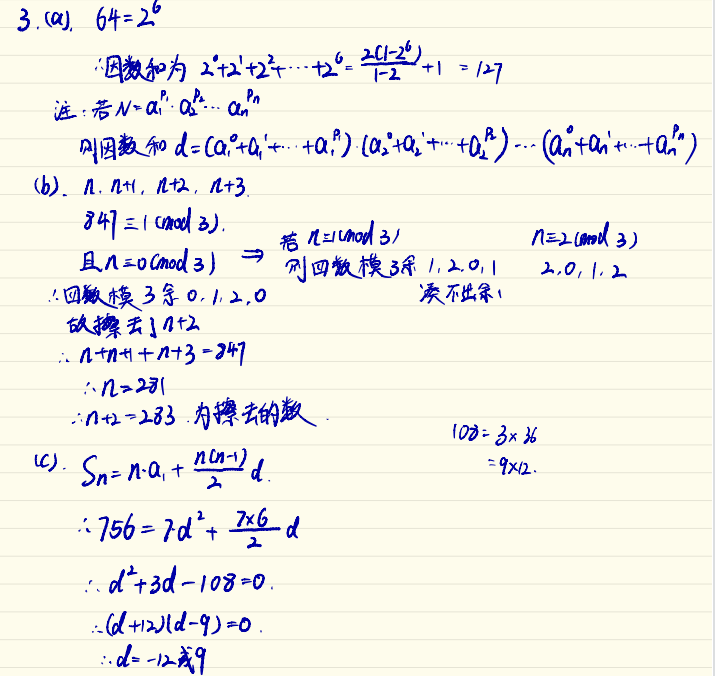 3.(a). 64=2^6
∴因数和为 2^0+2^1+2^2+⋯+2^6=\frac{2(1-2^6)}{1-2}+1 =127
注:若N=a_1^{P_1}·a_2^{P_2}⋯a_n^{P_n}
则因数和 d=(a_1^0+a_1^1+⋯+a_1^{P_1})·(a_2^0+a_2^1+⋯+a_2^{P_2})⋯(a_n^0+a_n^1+⋯+a_n^{P_n})
(b). n, n+1, n+2, n+3.
847≡1(mod 3).
且n≡0(mod 3) ⇒ 若 n≡1(mod 3) n≡2(mod 3)
则四数模3余 1,2,0,1 2,0,1,2
∴四数模3余 0,1,2,0 凑不出余1
故擦去了n+2
∴ n+n+1+n+3=847
∴n=281
∴n+2=283 为擦去的数.
108=3×36
=9×12.
(c). S_n=n·a_1+\frac{n(n-1)}{2}d.
∴756=7d^2+\frac{7×6}{2}d
∴d^2+3d-108=0.
∴(d+12)(d-9)=0.
∴d=-12或9